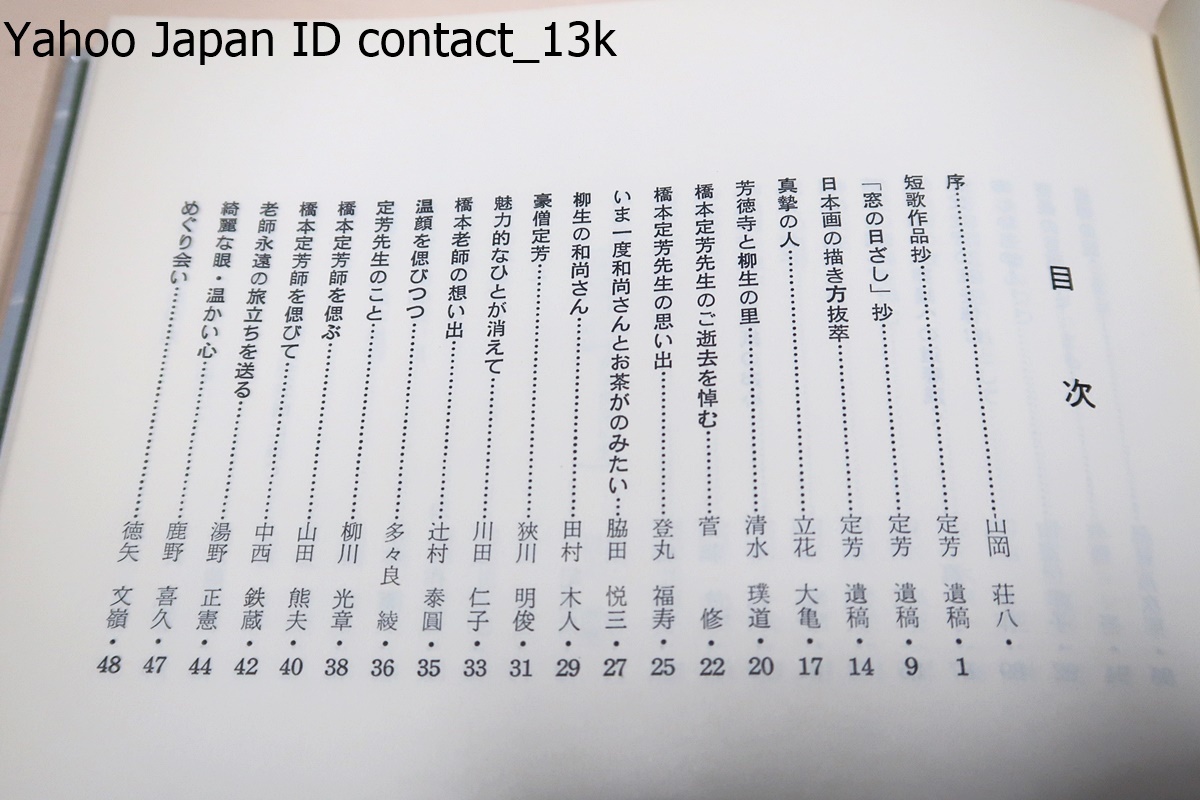 Yahoo Japan ID contact_13k
目次
序……山岡 荘八・
短歌作品抄……定芳 遺稿・1
「窓の日ざし」抄……定芳 遺稿・9
日本画の描き方抜萃……定芳 遺稿・14
真摯の人……立花 大亀・17
芳徳寺と柳生の里……清水 璞道・20
橋本定芳先生のご逝去を悼む……菅 修・22
橋本定芳先生の思い出……登丸 福寿・25
いま一度和尚さんとお茶がのみたい……脇田 悦三・27
柳生の和尚さん……田村 木人・29
豪僧定芳……狹川 明俊・31
魅力的なひとが消えて……川田 仁子・33
橋本老師の想い出……辻村 泰圓・35
温顔を偲びつつ……多々良 綾・36
定芳先生のこと……柳川 光章・38
橋本定芳師を偲ぶ……山田 熊夫・40
橋本定芳師を偲びて……中西 鉄蔵・42
老師永遠の旅立ちを送る……湯野 正憲・44
綺麗な眼・温かい心……鹿野 喜久・47
めぐり会い……徳矢 文嶺・48